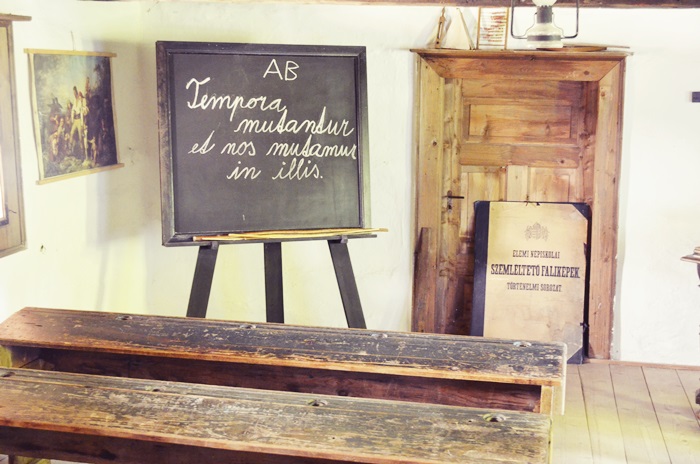 AB
Tempora
mutantur
et nos mutamur
in illis.
ELEMI NÉPISKOLAI
SZEMLÉLTETŐ FALIKÉPEK.
TÖRTÉNELMI SOROZAT.